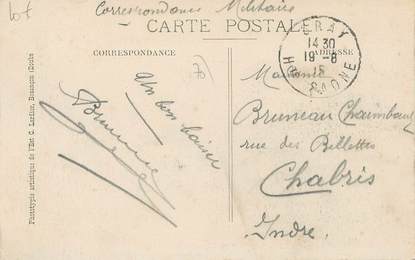 lot
Correspondance Militaire
CARTE POSTALE
CORRESPONDANCE
ADRESSE
RAY
14 30
19 - 8
15
SAONE
Un bon baiser
Bruneau
Madame
Bruneau Chaimbault
rue des Billettes
Chabris
Indre.
Phototypie artistique de l'Est C. Lardier, Besançon (Doubs)